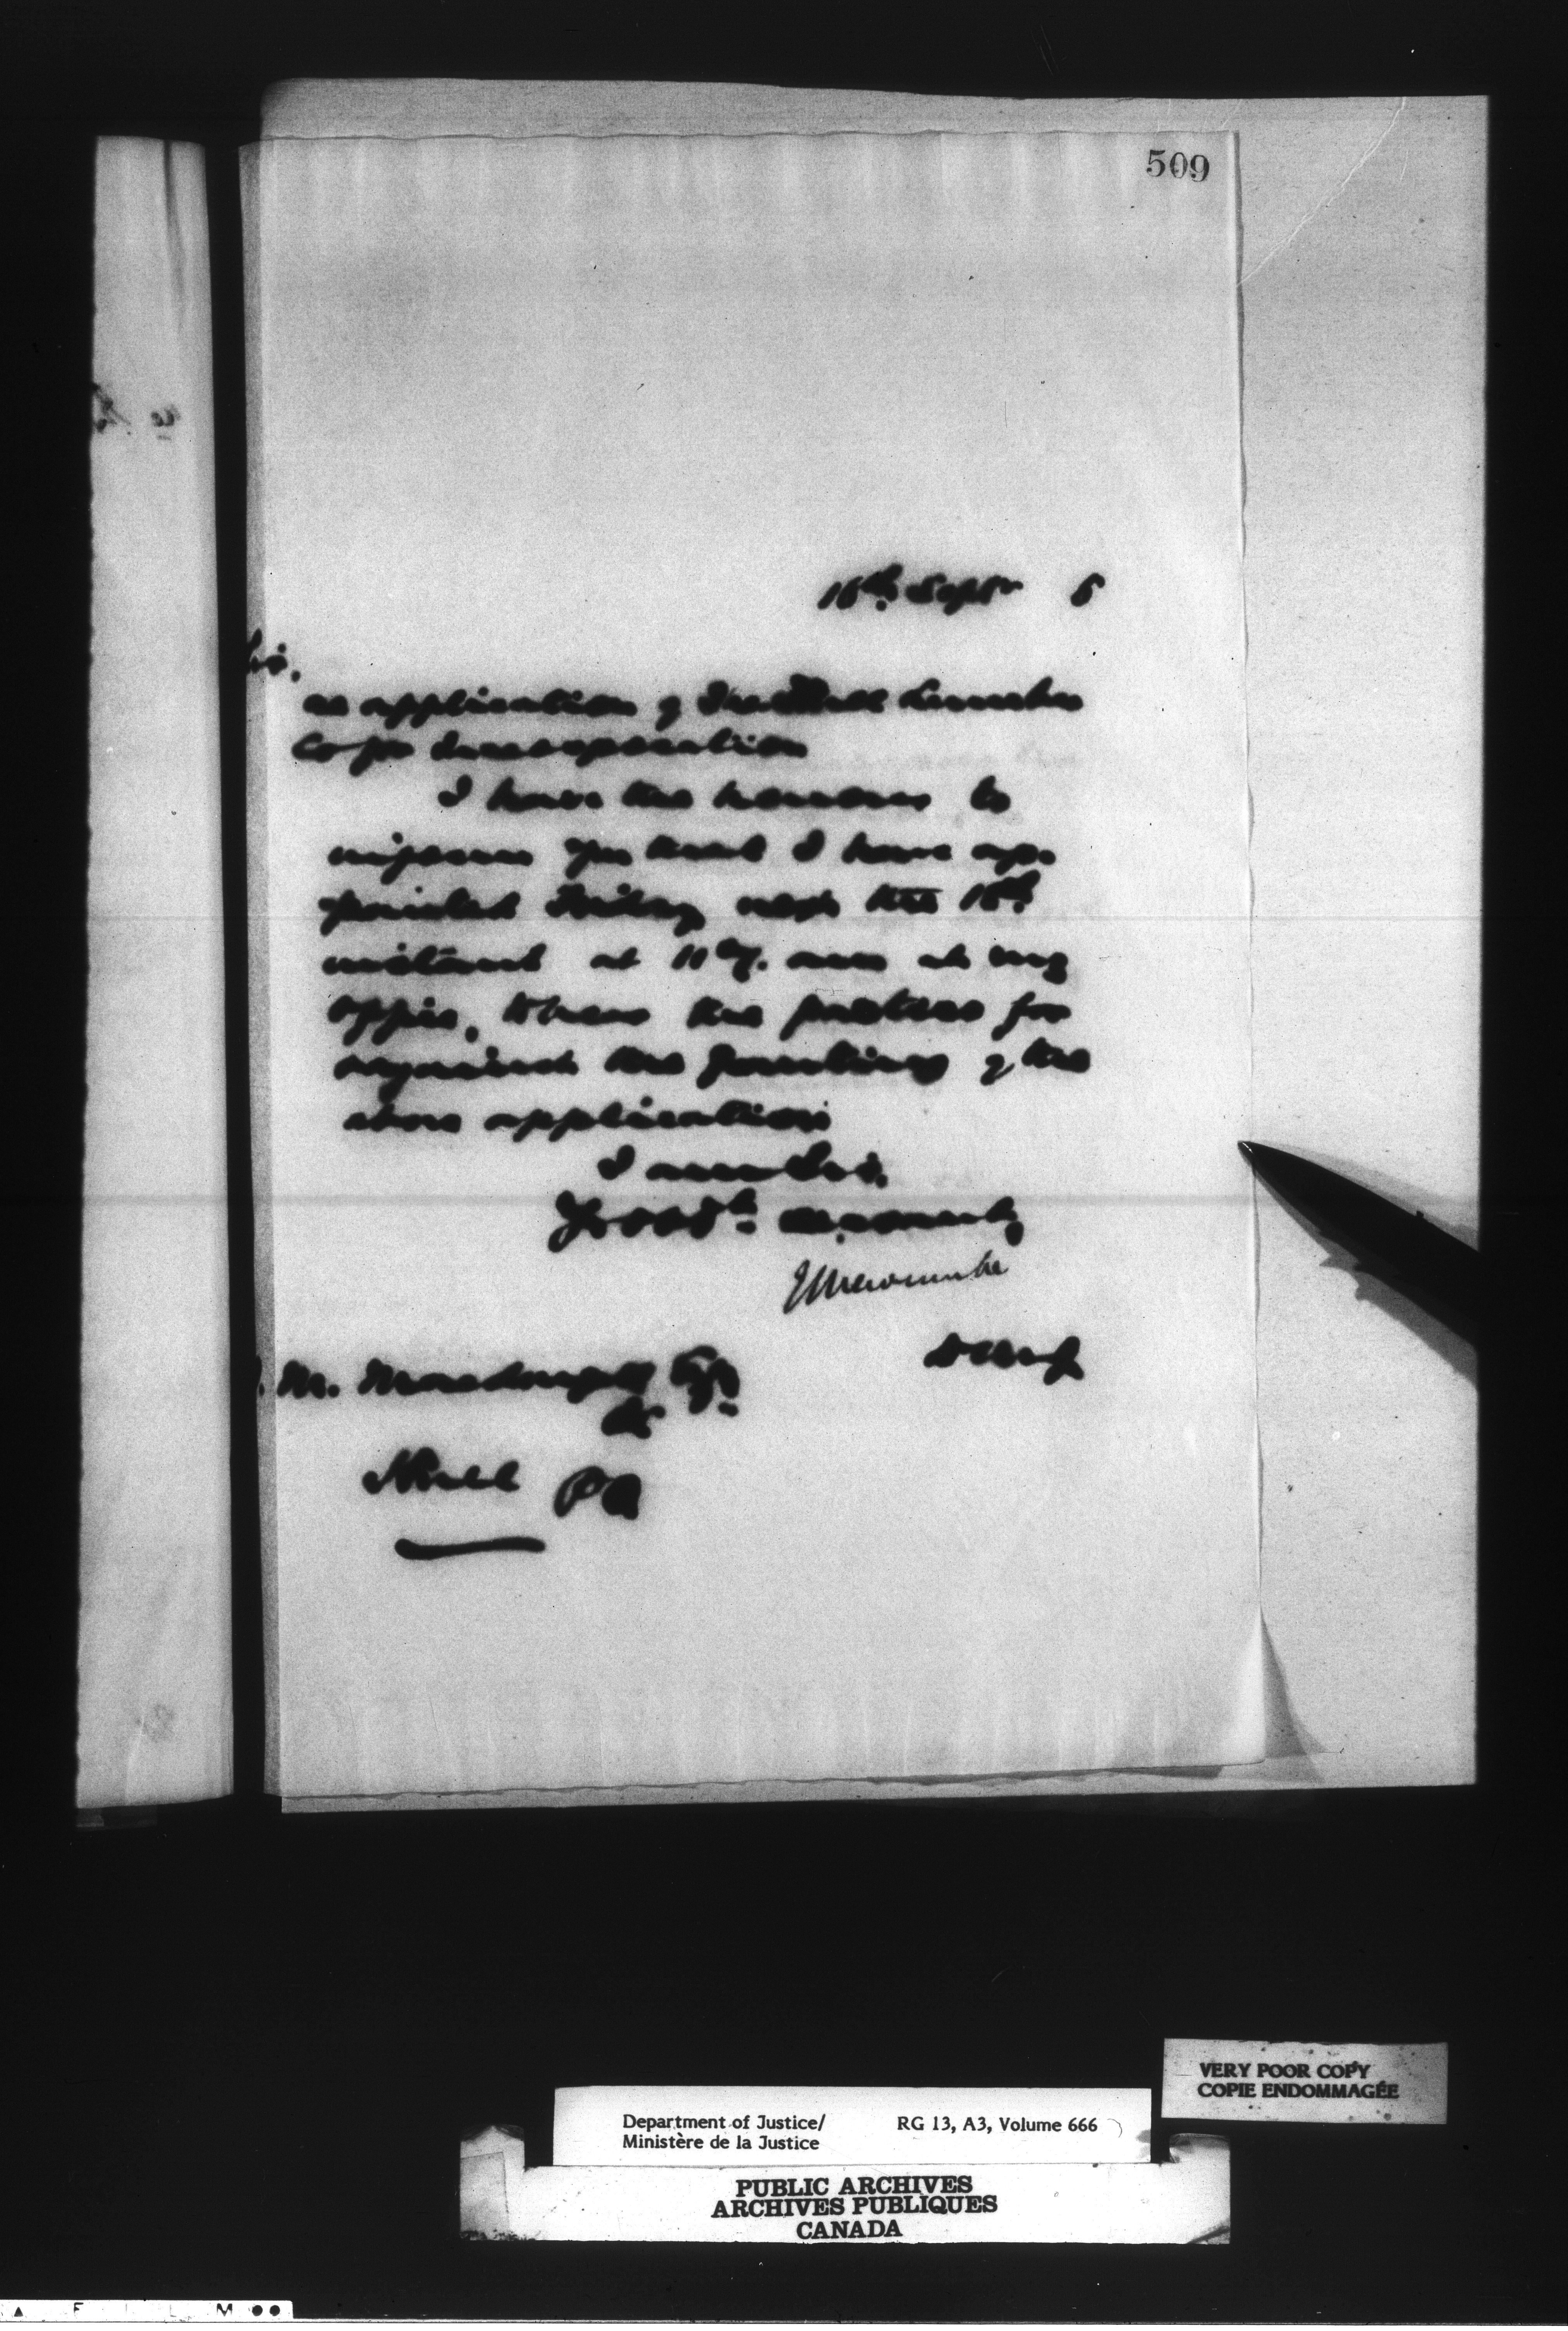 509
16th Septr 6
Sir,
re application of the Hull Lumber
Co for Incorporation
I have the honour to
inform you that I have ap-
pointed Friday next the 18th
instant at 11 am at my
office, when the parties for
against the granting of the
above application
I am Sir,
Yr obdt servant,
E L Newcombe
DMJ
M. Macdougall Esq
&c
Hull PQ
VERY POOR COPY
COPIE ENDOMMAGÉE
Department of Justice/ RG 13, A3, Volume 666
Ministère de la Justice
PUBLIC ARCHIVES
ARCHIVES PUBLIQUES
CANADA
F I L M